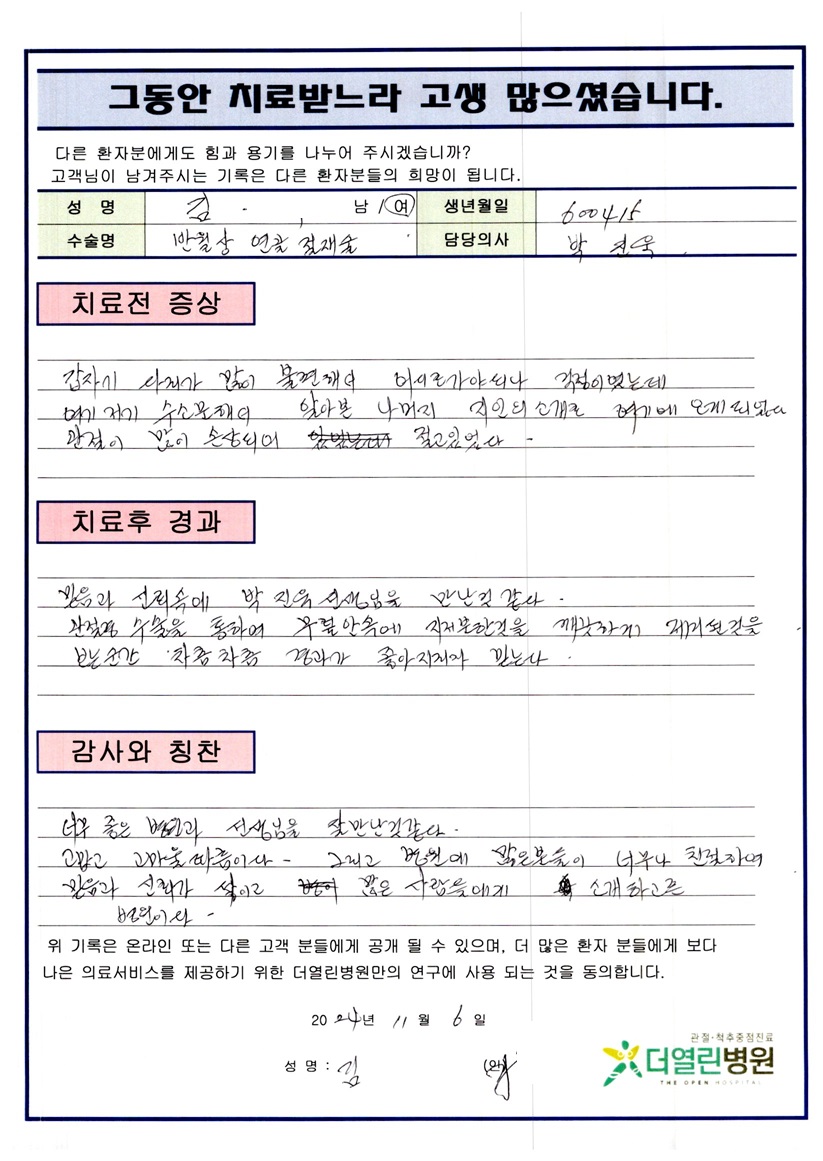 그동안 치료받느라 고생 많으셨습니다.
다른 환자분에게도 힘과 용기를 나누어 주시겠습니까?
고객님이 남겨주시는 기록은 다른 환자분들의 희망이 됩니다.
성 명 김 남 / 여 생년월일 600415
수술명 반월상 연골 절재술 담당의사 박 진욱
치료전 증상
갑자기 다리가 많이 불편해서 어디로가야되나 걱정이였는데
여기 저기 수소문해서 알아본 나머지 지인의소개로 여기에 오게 되었다
관절이 많이 손상되어 절고있었다
치료후 경과
믿음과 신뢰속에 박 진욱 선생님을 만난것 같다.
수술을 통하여 무릎안속에 지저분한것을 깨끗하게 제거된것을
보는순간 차츰차츰 경과가 좋아지리라 믿는다.
감사와 칭찬
너무 좋은 병원과 선생님을 잘만난것같다.
고맙고 고마울따름이다 - 그리고 병원에 많은분들이 너무나 친절하여
믿음과 신뢰가 쌓이고 많은 사람들에게 소개하고픈
병원이다 -
위 기록은 온라인 또는 다른 고객 분들에게 공개 될 수 있으며, 더 많은 환자 분들에게 보다
나은 의료서비스를 제공하기 위한 더열린병원만의 연구에 사용 되는 것을 동의합니다.
2024년 11월 6일
성 명 : 김 (인)
관절·척추중점진료
더열린병원
THE OPEN HOSPITAL